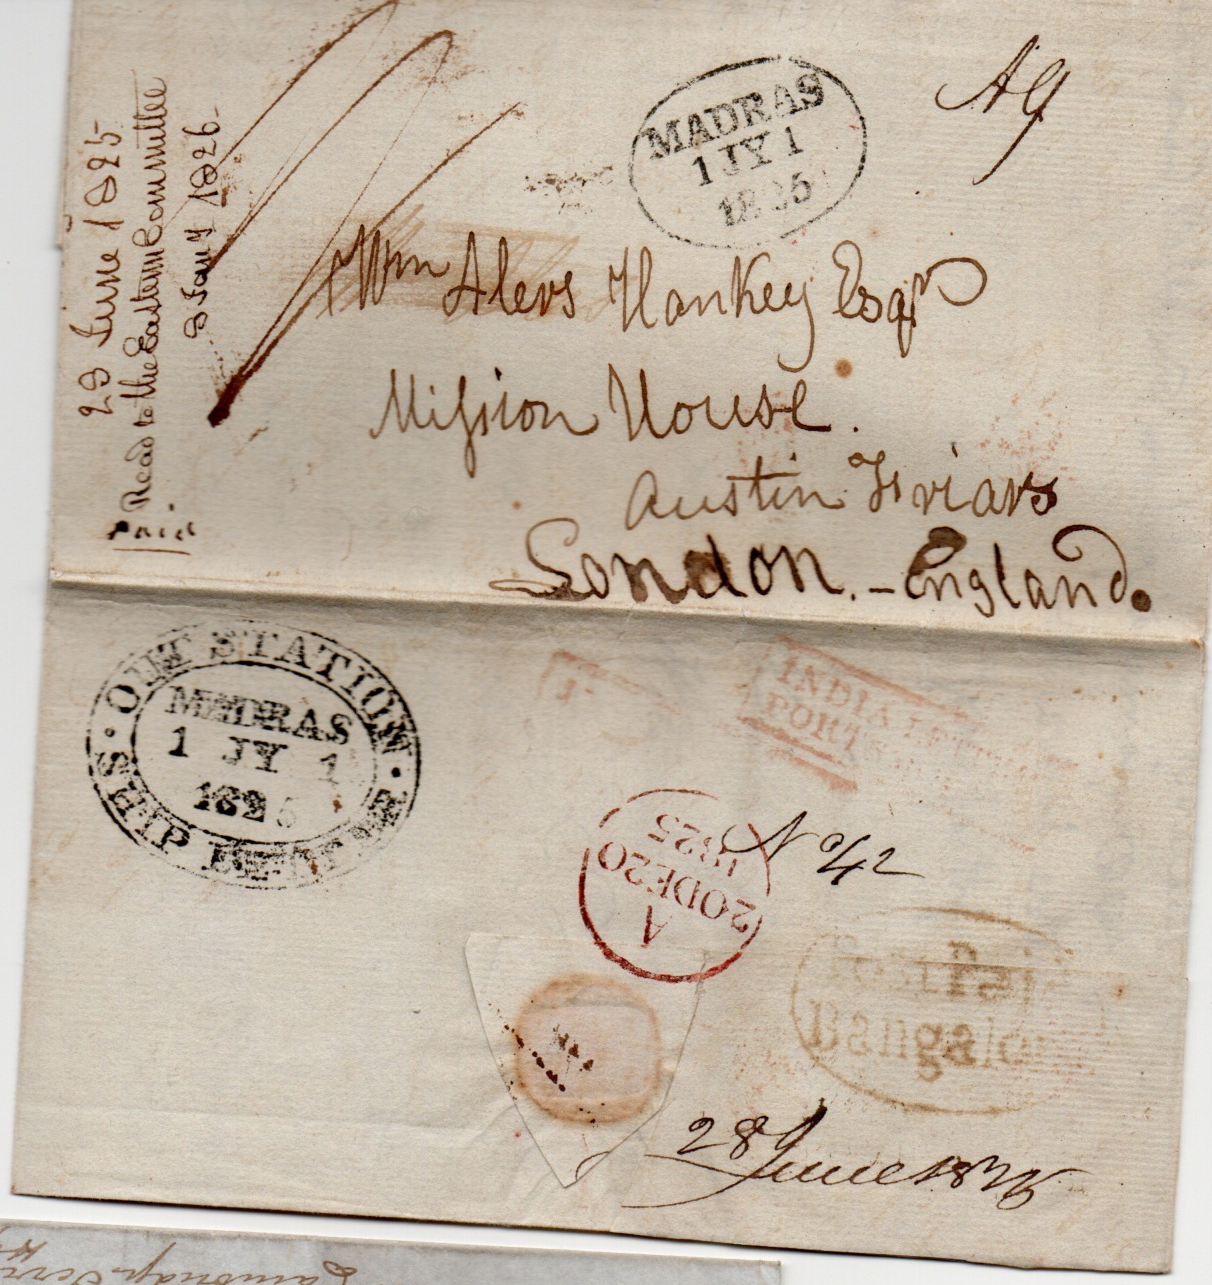 23 June 1825
Read to the Eastern Committee
3 Jany 1826.
paid
MADRAS
1 JY 1
1825
Wm Alers Hankey Esqr
Mission House.
Austin Friars
London. - England.
OUT STATION
SHIP LETTER
MADRAS
1 JY 1
1825
INDIA LETTER
PORT
A
20DE20
1825
No 42
Bangalo
28 June 1825